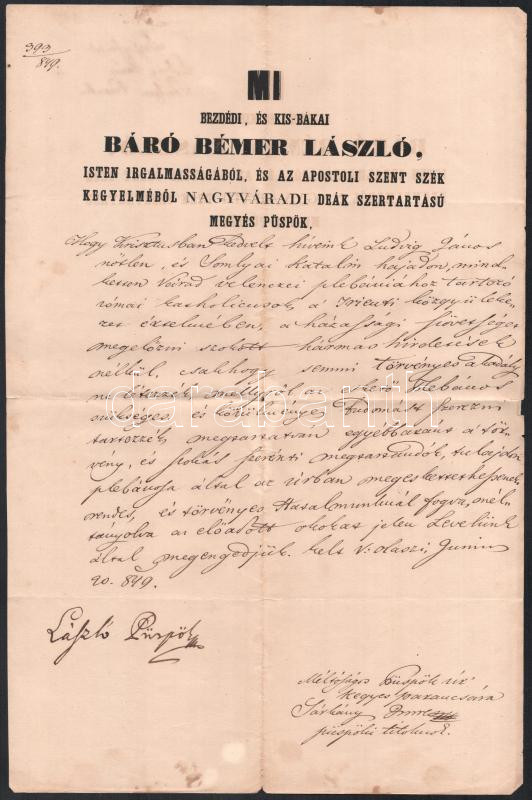 393
849.
MI
BEZDÉDI, ÉS KIS-BÁKAI
BÁRÓ BÉMER LÁSZLÓ,
ISTEN IRGALMASSÁGÁBÓL, ÉS AZ APOSTOLI SZENT SZÉK
KEGYELMÉBŐL NAGYVÁRADI DEÁK SZERTARTÁSÚ
MEGYÉS PÜSPÖK,
Hogy Krisztusban kedvelt híveink Ludvig János
nőtlen, és Somlyai Katalin hajadon, mind-
ketten Várad velenczei plebániához tartozó
római katholicusok, a' Trienti közgyüleke-
zet értelmében, a házassági szövetséget
megelőzni szokott hármas hirdetések
nélkül, csakhogy semmi törvényes akadály
ne létezzék, mellyről az illető Plebános
szükséges, és körülményes tudomást szerezni
tartozzék, megtartatván egyébbaránt a tör-
vény, és szokás szerénti megtartandók, tulajdon
plebánosa által az úrban megeskettethessenek
rendes, és törvényes Hatalmunknál fogva, mél-
tányolva az előadott okokat jelen Levelünk
által megengedjük. kelt V. olaszi, Junius
20. 849.
László Püspök
Méltóságos Püspök úr
kegyes parancsára
Sárkány
püspöki titoknok.
darabanth